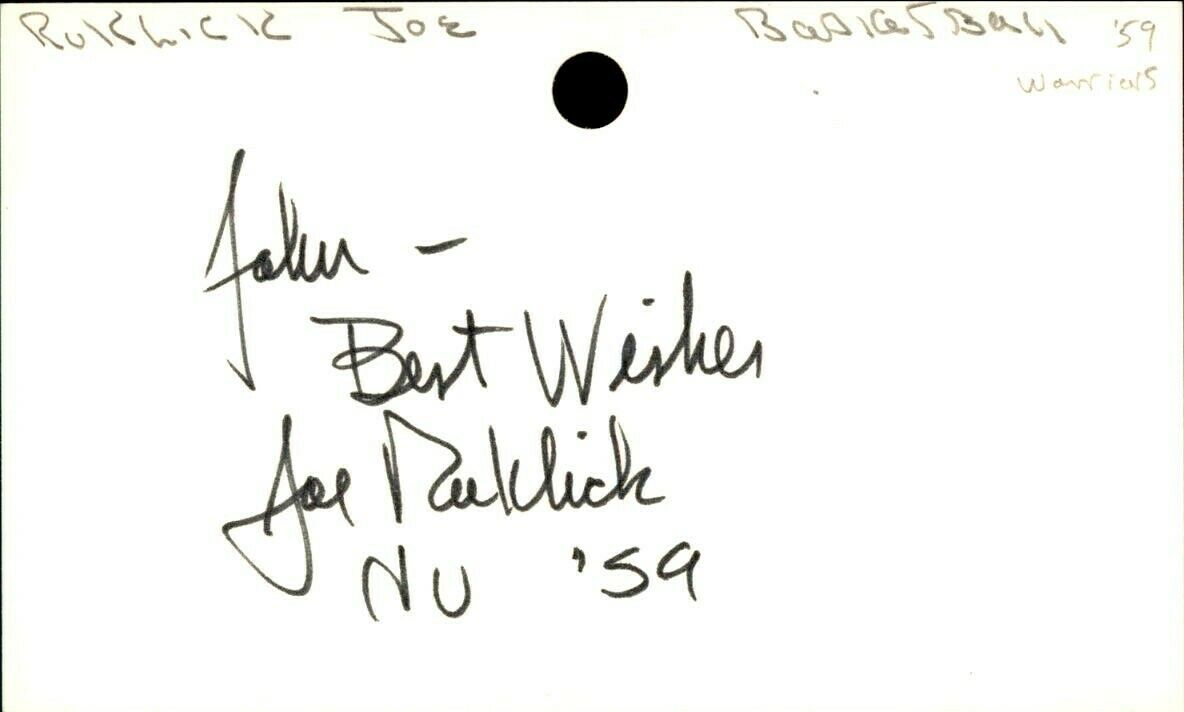 RUKLICK JOE BASKETBALL '59
Warriors
John -
Best Wishes
Joe Ruklick
NU '59